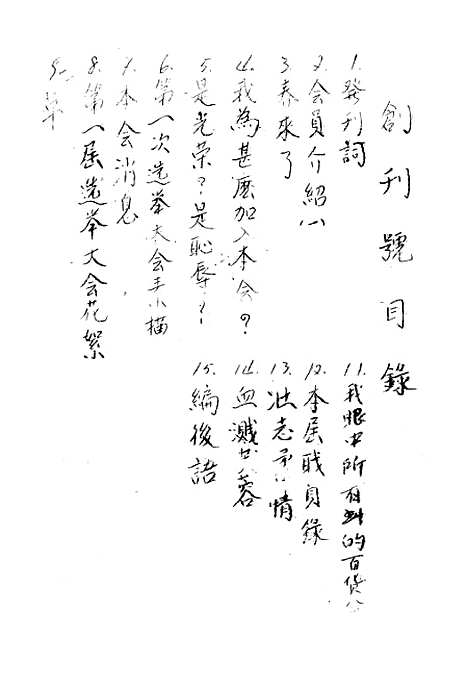 創刊號目錄
1. 發刊詞
2. 会員介紹(一)
3. 春來了
4. 我為甚麼加入本会?
5. 是光榮?是恥辱?
6. 第一次选举大会
7. 本会消息
8. 第一屆选举大会花絮
9.
11. 我眼中所看到的百貨
12. 本屆职員錄
13.
14. 血濺芙蓉
15. 編後語